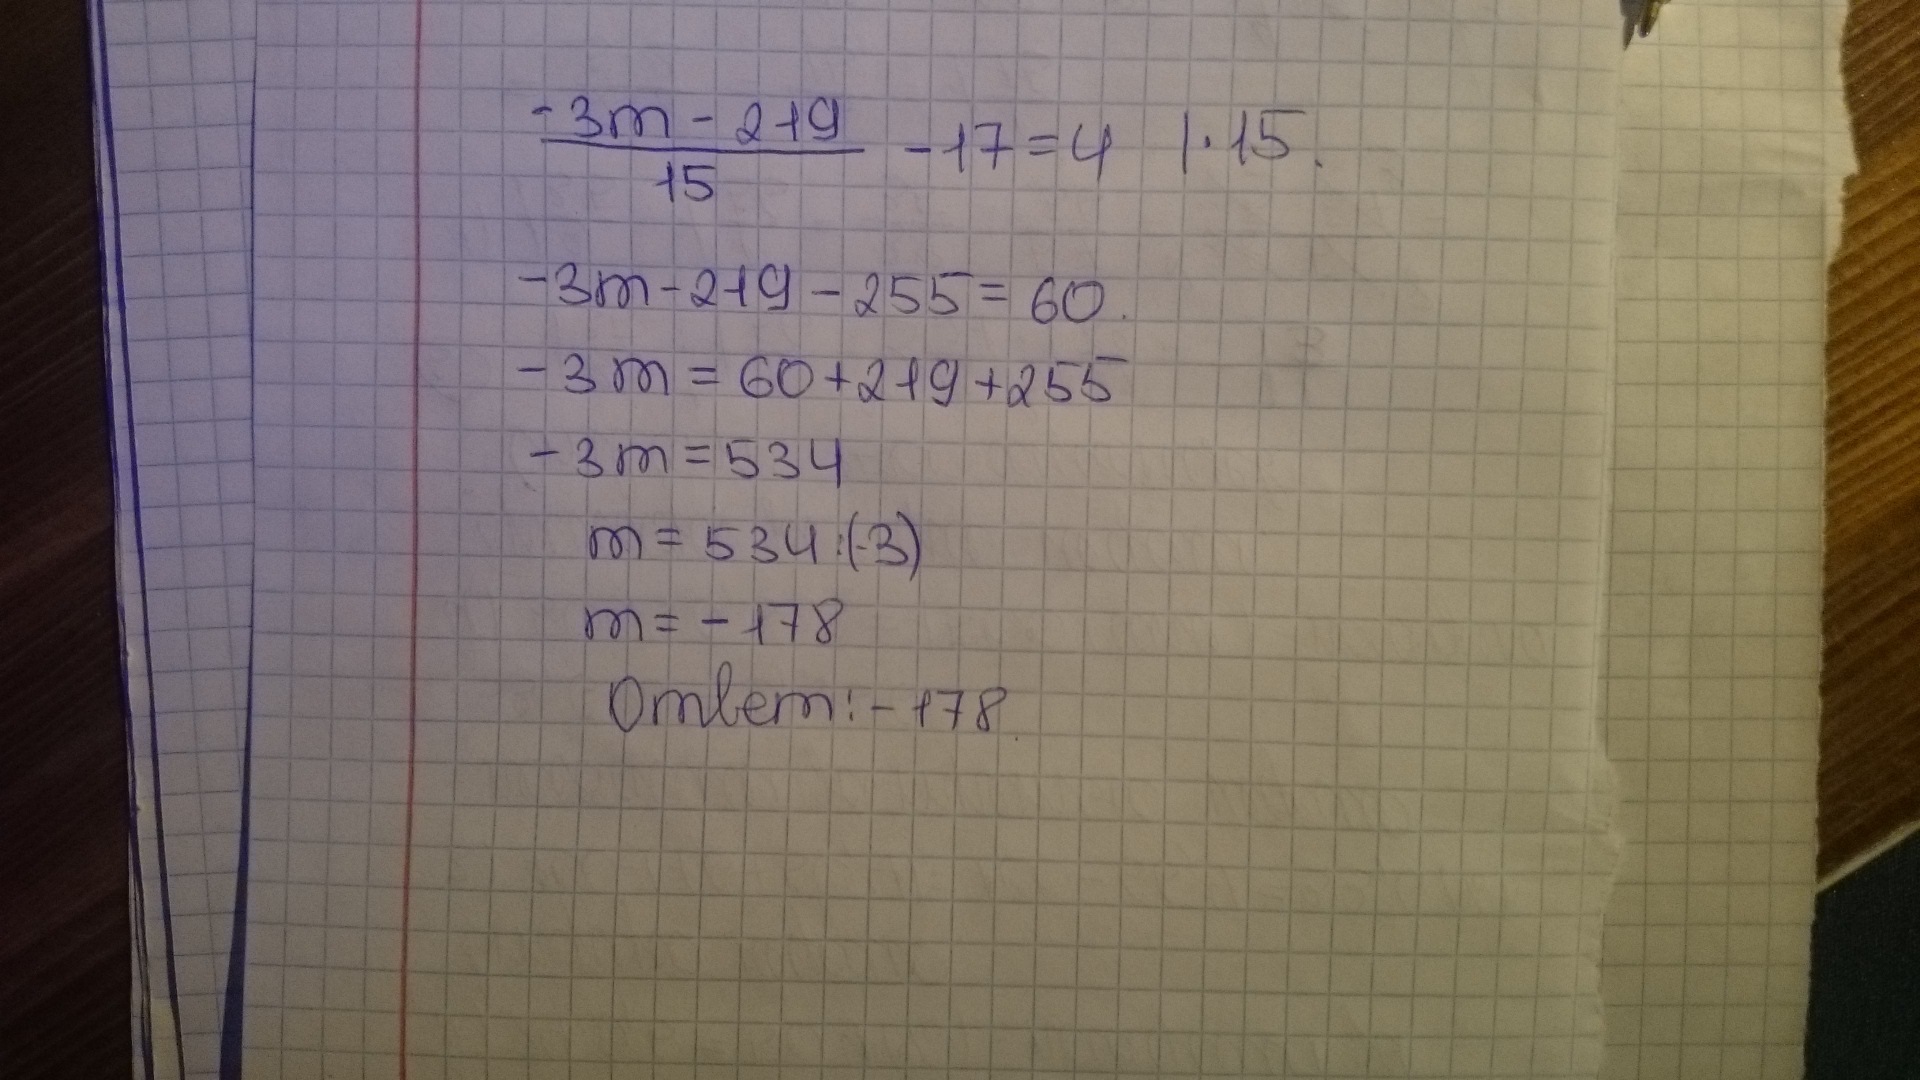 -3m - 219
15
- 17 = 4 | · 15.
-3m - 219 - 255 = 60.
-3m = 60 + 219 + 255
-3m = 534
m = 534 : (-3)
m = -178
Ответ: -178.